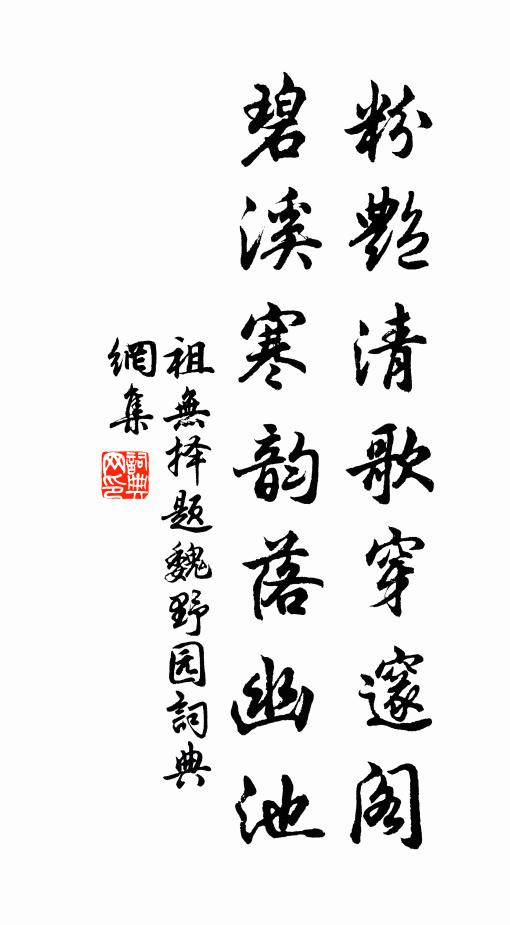 粉艳清歌穿邃阁
碧溪寒韵落幽池
祖無择题魏野园詞典
網集
詞典
网印